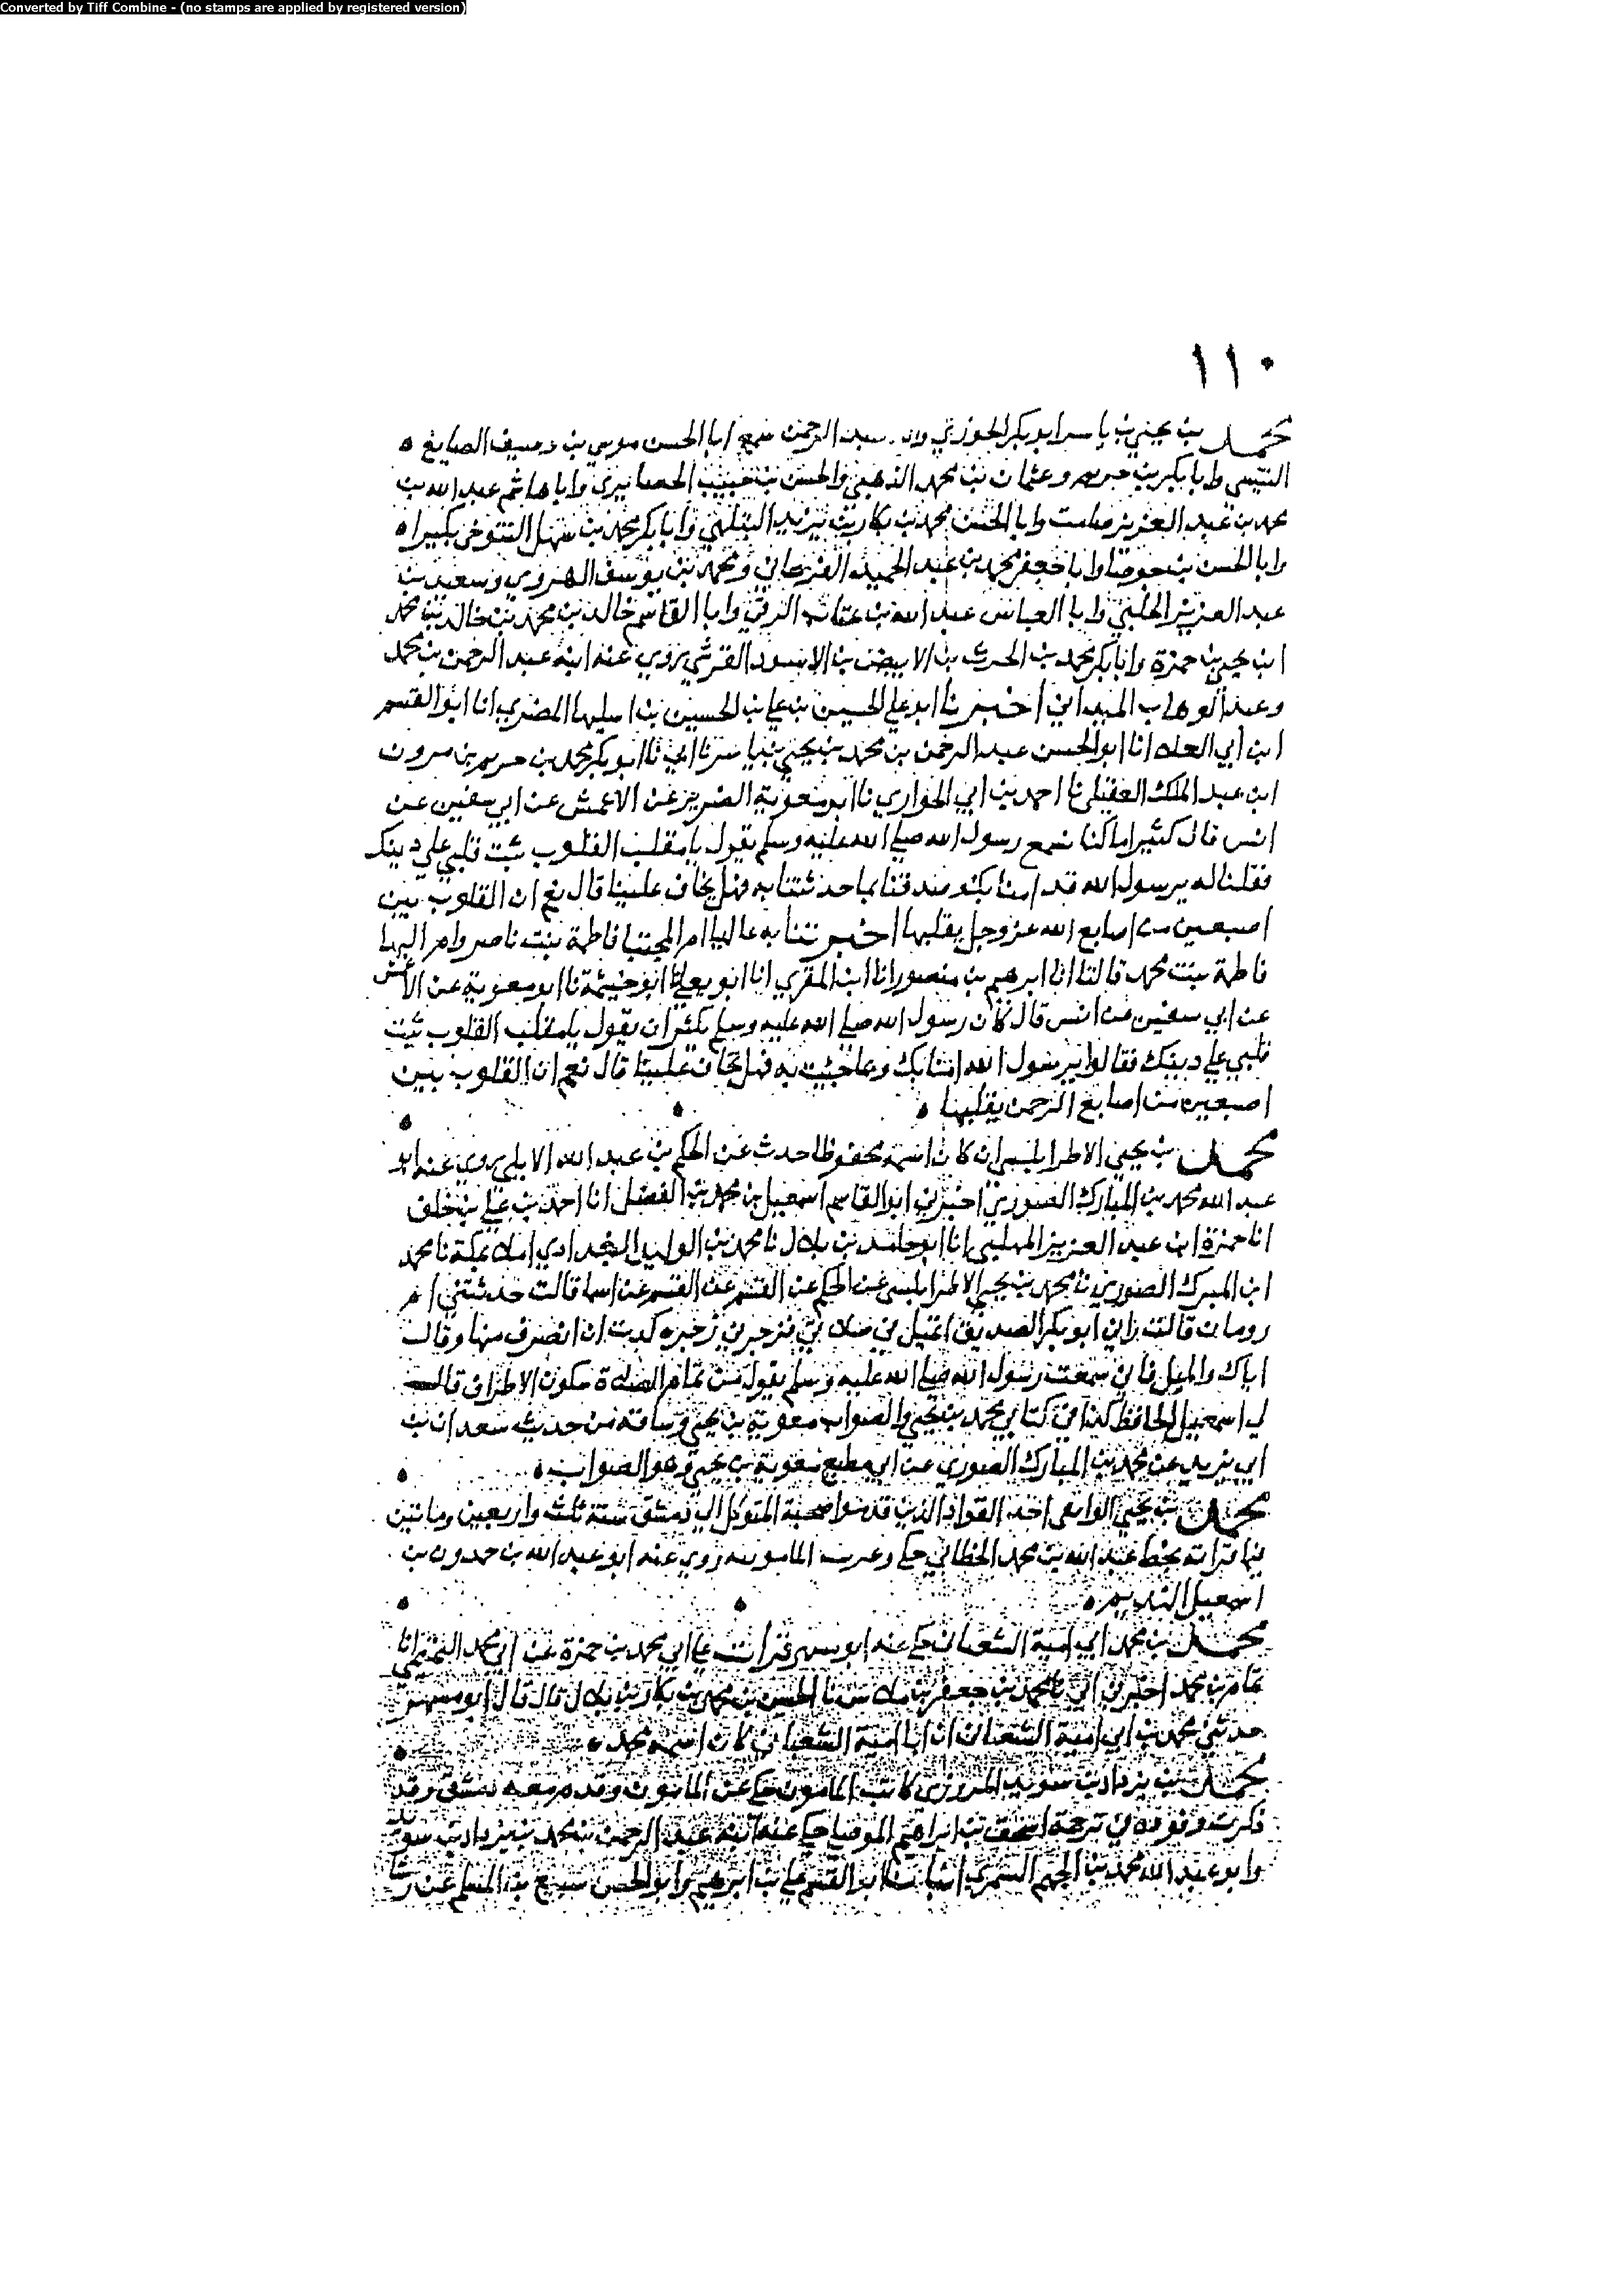 Converted by Tiff Combine - (no stamps are applied by registered version)
١١٠
محمد بن يحيى بن ياسر ابو بكر الجوزي عبد الرحمن سمع ابا الحسن موسى بن الصايغ
التنيسي وابا بكر بن خريم وعثمان بن محمد الذهبي والحسن بن حبيب الحصايري وابا هاشم عبد الله بن
محمد بن عبد العزيز وابا الحسن محمد بن بكار بن يزيد البتلهي وابا بكر محمد بن سهل التنوخي بكيراه
وابا الحسن بن جوصا وابا جعفر محمد بن عبد الحميد الفرغاني ومحمد بن يوسف الهروي وسعيد بن
عبد العزيز الحلبي وابا العباس عبد الله بن عتاب الزفتي وابا القاسم خالد بن محمد بن خالد بن محمد
ابن يحيى بن حمزة وابا بكر محمد بن الحرث بن الابيض بن الاسود القرشي يروي عنه ابنه عبد الرحمن بن محمد
وعبد الوهاب الميداني اخبرنا ابو علي الحسين بن علي بن الحسين بن المصري انا ابو القسم
ابن أبي العلاء انا ابو الحسن عبد الرحمن بن محمد بن يحيى بن ياسر نا ابي نا ابو بكر محمد بن خريم بن مروان
ابن عبد الملك العقيلي نا احمد بن أبي الحواري نا ابو معوية الضرير عن الاعمش عن ابي سفين عن
انس قال كثيرا ما كنا نسمع رسول الله صلى الله عليه وسلم يقول يا مقلب القلوب ثبت قلبي على دينك
فقلنا له يرسول الله قد امنا بك وصدقنا بما حدثتنا به فهل يخاف علينا قال نعم ان القلوب بين
اصبعين من اصابع الله عز وجل يقلبها اخبرتنا به عاليا ام المجتبا فاطمة بنت ناصر وام البها
فاطمة بنت محمد قالتا انا ابرهيم بن منصور انا ابن المقري انا ابو يعلى نا ابو خيثمة نا ابو معوية عن الاعمش
عن ابي سفين عن انس قال كان رسول الله صلى الله عليه وسلم يكثر ان يقول يا مقلب القلوب ثبت
قلبي على دينك فقالوا يرسول الله امنا بك وبما جيت به فهل تخاف علينا قال نعم ان القلوب بين
اصبعين من اصابع الرحمن يقلبها
محمد بن يحيى الاطرابلسي ان كان اسمه محفوظا حدث عن الحكم بن عبد الله الايلي يروي عنه ابو
عبد الله محمد بن المبارك الصوري اخبرني ابو القاسم اسمعيل بن محمد بن الفضل انا احمد بن علي بن خلف
انا حمزة ابن عبد العزيز المهلبي انا ابو حامد بن بلال نا محمد بن الوليد البغدادي املاء بمكة نا محمد
ابن المبرك الصوري نا محمد بن يحيى الاطرابلسي عن الحكم عن القسم عن اسما قالت حدثتني ام
رومان قالت راني ابو بكر الصديق اتميل في صلاتي فزجرني زجرة كدت ان انصرف منها وقال
اياك والميل فاني سمعت رسول الله صلى الله عليه وسلم يقول من تمام الصلاة سكون الاطراف قال
لي اسمعيل الحافظ كذا في كتابي محمد بن يحيى والصواب معوية بن يحيى وساقه من حديث سعدان بن
ابي يزيد عن محمد بن المبارك الصوري عن ابي مطيع معوية بن يحيى وهو الصواب
محمد بن يحيى الواثقي احد القواد الذين قدموا صحبة المتوكل الى دمشق سنة ثلث واربعين وماتين
فيما قراته بخط عبد الله بن محمد الخطابي حكى وعريب المامونيه روى عنه ابو عبد الله بن حمدون بن
اسمعيل النديم
محمد بن محمد ابي امية الشعباني حكى عنه ابو مسهر قرات على ابي محمد بن حمزة عن ابي محمد التميمي انا
تمام بن محمد اخبرني ابي نا محمد بن جعفر بن ملاس نا الحسن بن محمد بن بكار بن بلال قال قال ابو مسهر
حدثني محمد بن ابي امية الشعباني ان ابا امية الشعباني كان اسمه محمد
محمد بن يزداد بن سويد المروزي كاتب المامون حكى عن المامون وقدم معه دمشق وقد
ذكرت وفوده في ترجمة اسحق بن ابراهيم الموصلي حكى عنه ابنه عبد الرحمن بن محمد بن يزداد بن سويد
وابو عبد الله محمد بن الجهم السمري انبانا ابو القسم علي بن ابرهيم وابو الحسن سبيع بن المسلم عن رشا